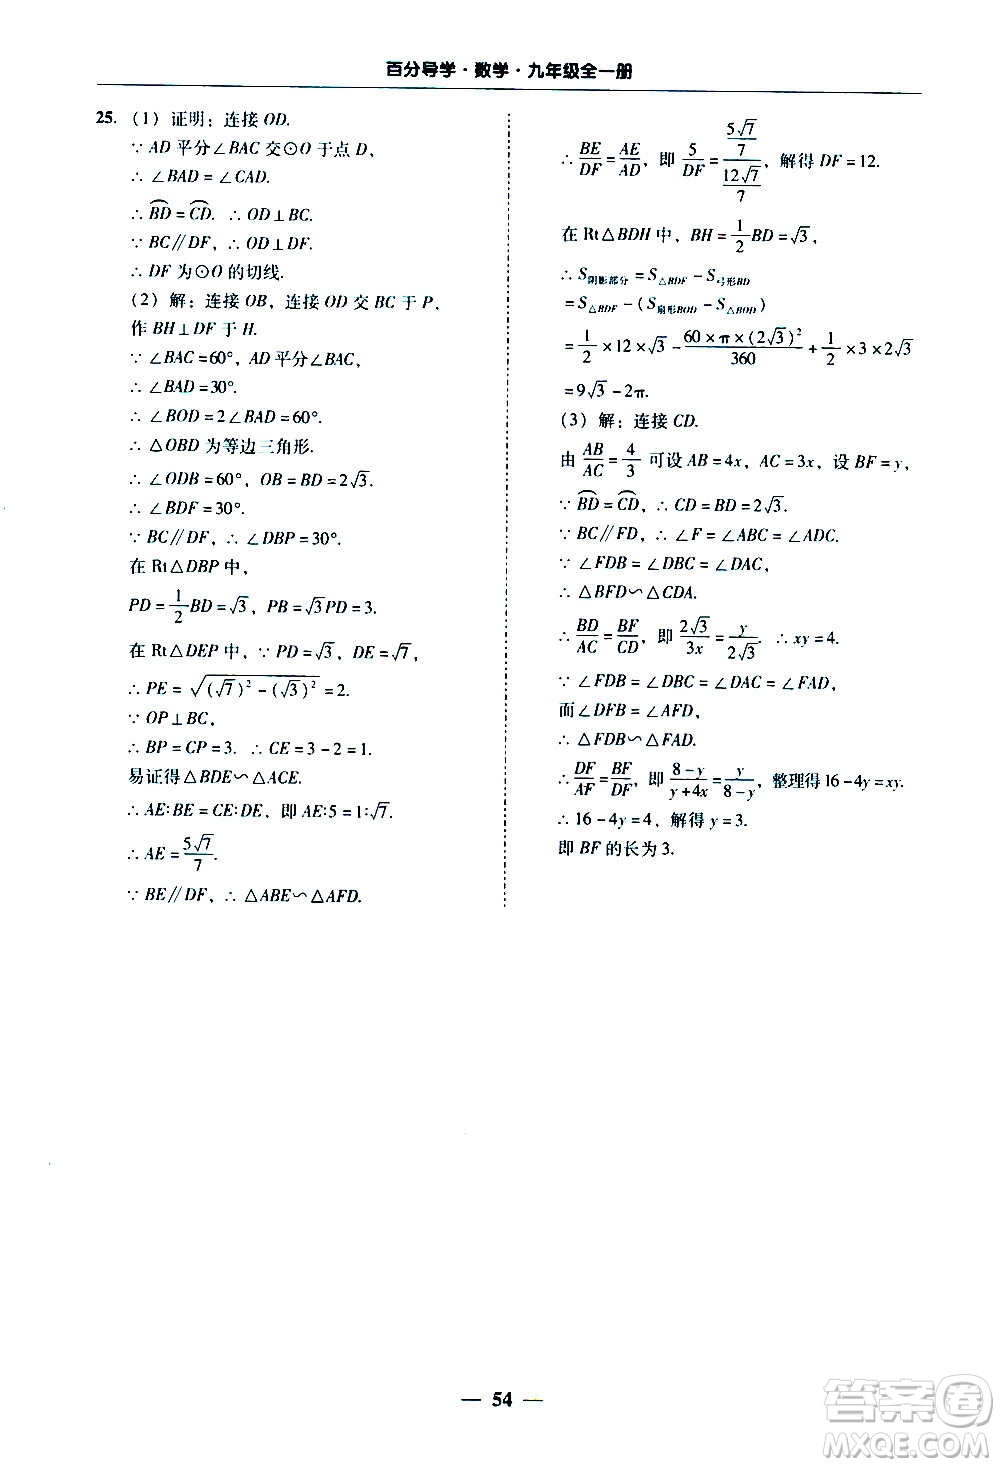 百分导学·数学·九年级全一册
25. (1) 证明：连接 OD.
∵ AD 平分∠BAC 交⊙O 于点 D，
∴ ∠BAD = ∠CAD.
∴ \overset{\frown}{BD} = \overset{\frown}{CD}. ∴ OD⊥BC.
∵ BC∥DF，∴ OD⊥DF.
∴ DF 为⊙O 的切线.
(2) 解：连接 OB，连接 OD 交 BC 于 P，
作 BH⊥DF 于 H.
∵ ∠BAC = 60°，AD 平分∠BAC，
∴ ∠BAD = 30°.
∴ ∠BOD = 2∠BAD = 60°.
∴ △OBD 为等边三角形.
∴ ∠ODB = 60°，OB = BD = 2√3.
∴ ∠BDF = 30°.
∵ BC∥DF，∴ ∠DBP = 30°.
在 Rt△DBP 中，
PD = \frac{1}{2}BD = √3，PB = √3PD = 3.
在 Rt△DEP 中，∵ PD = √3，DE = √7，
∴ PE = \sqrt{(√7)² - (√3)²} = 2.
∵ OP⊥BC，
∴ BP = CP = 3. ∴ CE = 3 - 2 = 1.
易证得△BDE∽△ACE.
∴ AE∶BE = CE∶DE，即 AE∶5 = 1∶√7.
∴ AE = \frac{5√7}{7}.
∵ BE∥DF，∴ △ABE∽△AFD.
∴ \frac{BE}{DF} = \frac{AE}{AD}，即 \frac{5}{DF} = \frac{\frac{5√7}{7}}{\frac{12√7}{7}}，解得 DF = 12.
在 Rt△BDH 中，BH = \frac{1}{2}BD = √3，
∴ S阴影部分 = S△BDF - S弓形BD
= S△BDF - (S扇形BOD - S△BOD)
= \frac{1}{2} × 12 × √3 - \frac{60 × π × (2√3)²}{360} + \frac{1}{2} × 3 × 2√3
= 9√3 - 2π.
(3) 解：连接 CD.
由 \frac{AB}{AC} = \frac{4}{3} 可设 AB = 4x，AC = 3x，设 BF = y，
∵ \overset{\frown}{BD} = \overset{\frown}{CD}，∴ CD = BD = 2√3.
∵ BC∥FD，∴ ∠F = ∠ABC = ∠ADC.
∵ ∠FDB = ∠DBC = ∠DAC，
∴ △BFD∽△CDA.
∴ \frac{BD}{AC} = \frac{BF}{CD}，即 \frac{2√3}{3x} = \frac{y}{2√3}. ∴ xy = 4.
∵ ∠FDB = ∠DBC = ∠DAC = ∠FAD，
而∠DFB = ∠AFD，
∴ △FDB∽△FAD.
∴ \frac{DF}{AF} = \frac{BF}{DF}，即 \frac{8 - y}{y + 4x} = \frac{y}{8 - y}，整理得 16 - 4y = xy.
∴ 16 - 4y = 4，解得 y = 3.
即 BF 的长为 3.
— 54 —
答案卷
MXQE.COM